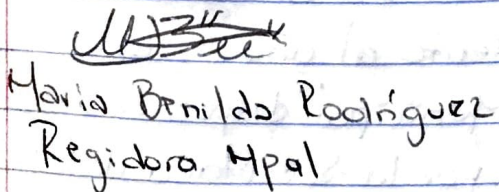 Maria Benilda Rodríguez
Regidora Mpal